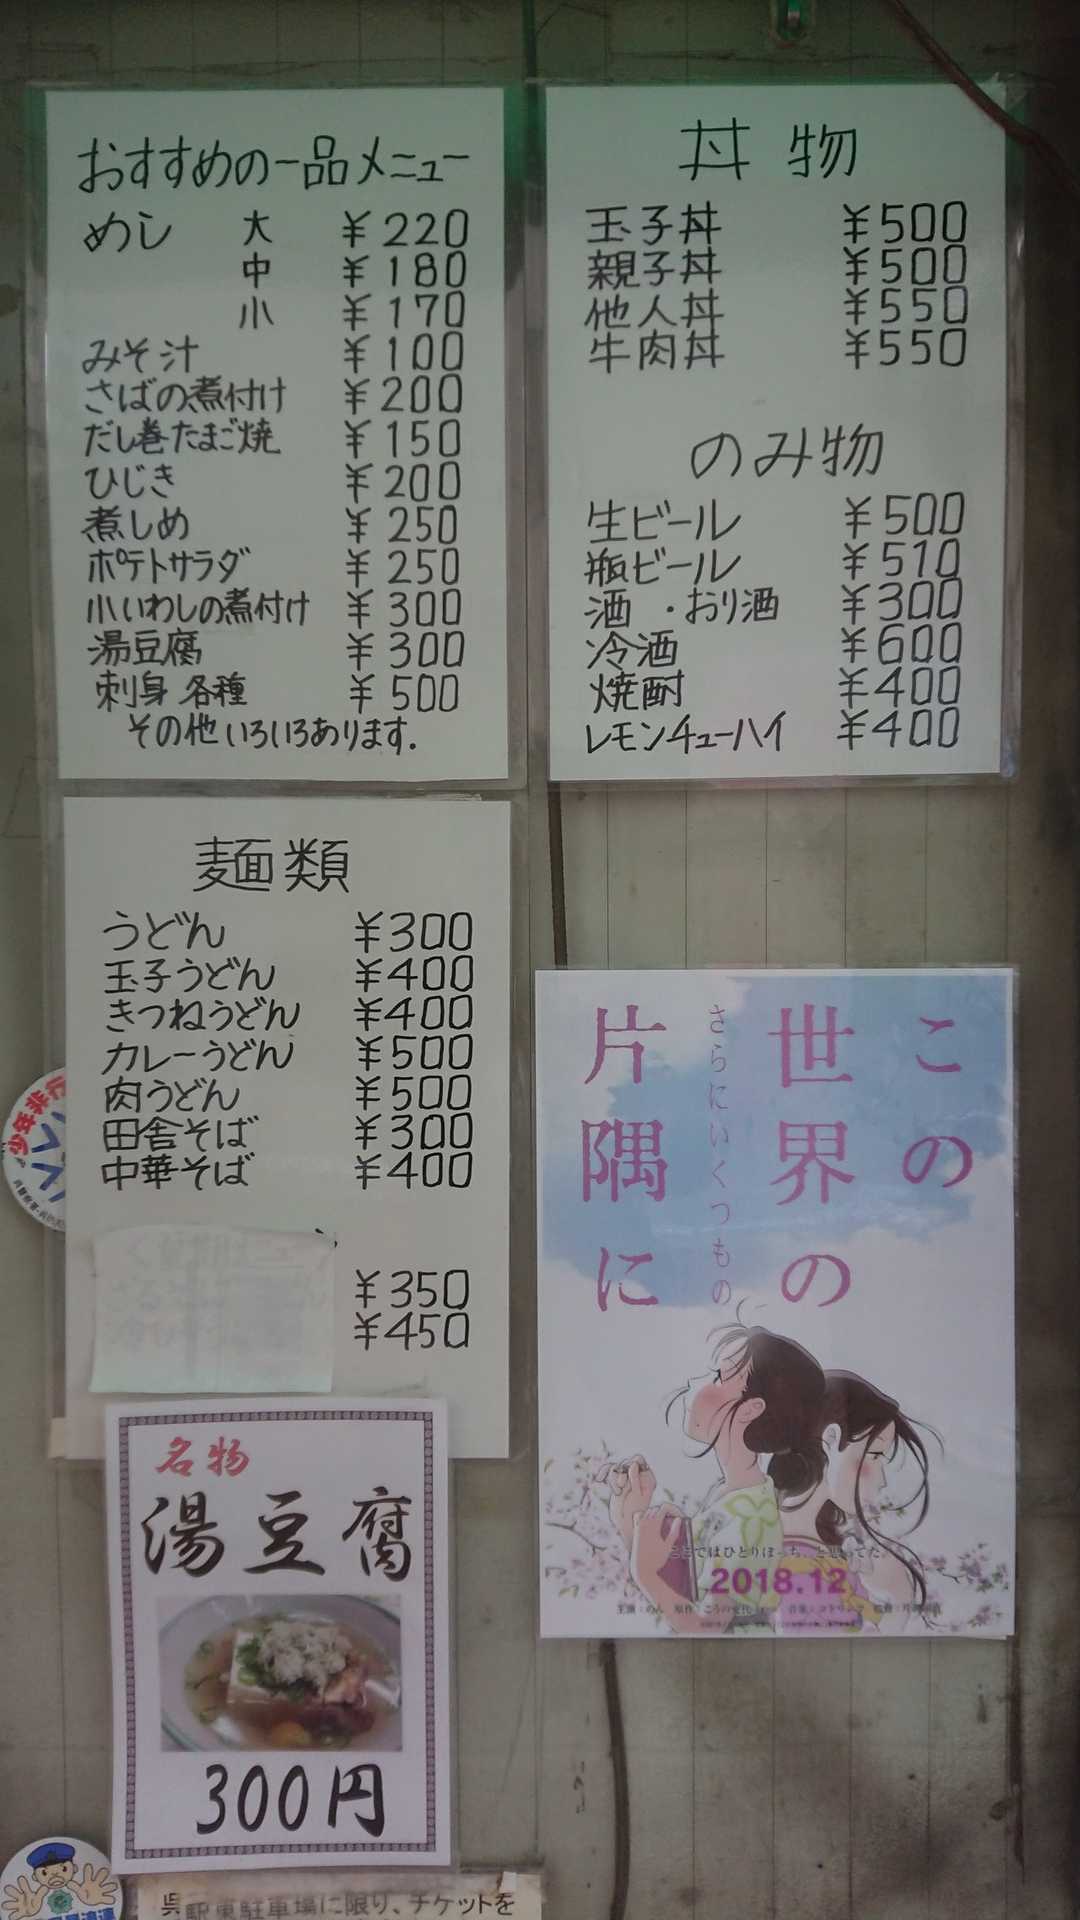 おすすめの一品メニュー
めし 大 ¥220
中 ¥180
小 ¥170
みそ汁 ¥100
さばの煮付け ¥200
だし巻たまご焼 ¥150
ひじき ¥200
煮しめ ¥250
ポテトサラダ ¥250
小いわしの煮付け ¥300
湯豆腐 ¥300
刺身 各種 ¥500
その他いろいろあります.
丼物
玉子丼 ¥500
親子丼 ¥500
他人丼 ¥550
牛肉丼 ¥550
のみ物
生ビール ¥500
瓶ビール ¥510
酒・おり酒 ¥300
冷酒 ¥600
焼酎 ¥400
レモンチューハイ ¥400
麺類
うどん ¥300
玉子うどん ¥400
きつねうどん ¥400
カレーうどん ¥500
肉うどん ¥500
田舎そば ¥300
中華そば ¥400
¥350
¥450
この
世界の
さらにいくつもの
片隅に
ここではひとりぼっち、と思ってた。
2018.12
名物
湯豆腐
300円
少年非行
呉駅東駐車場に限り、チケットを